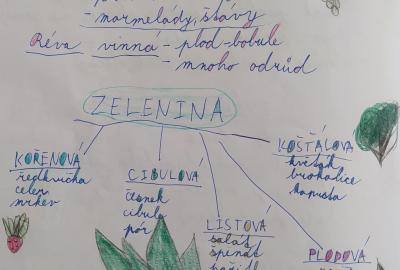 - marmelády, štávy
Réva vinná - plod - bobule
- mnoho odrůd
ZELENINA
KOŘENOVÁ
ředkvička
celer
mrkev
CIBULOVÁ
česnek
cibule
pór
LISTOVÁ
salát
špenát
KOŠŤÁLOVÁ
květák
brokolice
kapusta
PLODOVÁ